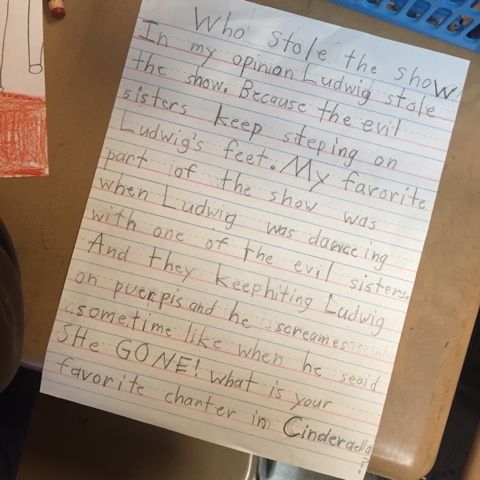 Who stole the show
In my opinion Ludwig stole
the show. Because the evil
sisters keep steping on
Ludwig's feet. My favorite
part of the show was
when Ludwig was danceing
with one of the evil sisters.
And they keep hiting Ludwig
on puerpis and he screames
sometime like when he seaid
SHe GONE! What is your
favorite charter in Cinderaella?